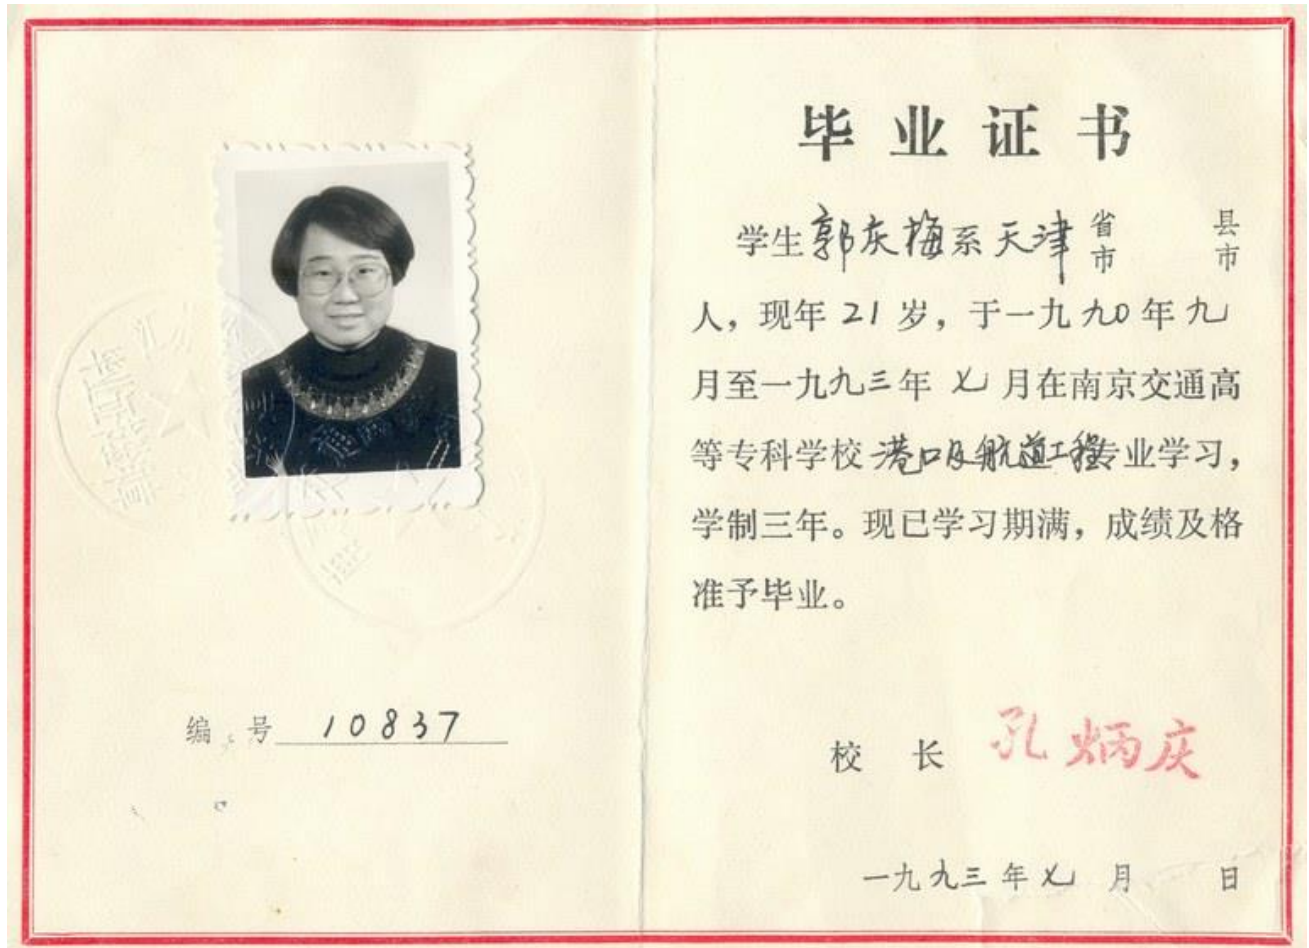 编 号 10837
毕业证书
学生郭庆梅系天津省市 县市
人，现年21岁，于一九九0年九
月至一九九三年七月在南京交通高
等专科学校港口及航道工程专业学习，
学制三年。现已学习期满，成绩及格
准予毕业。
校 长 孔炳庆
一九九三年七月 日